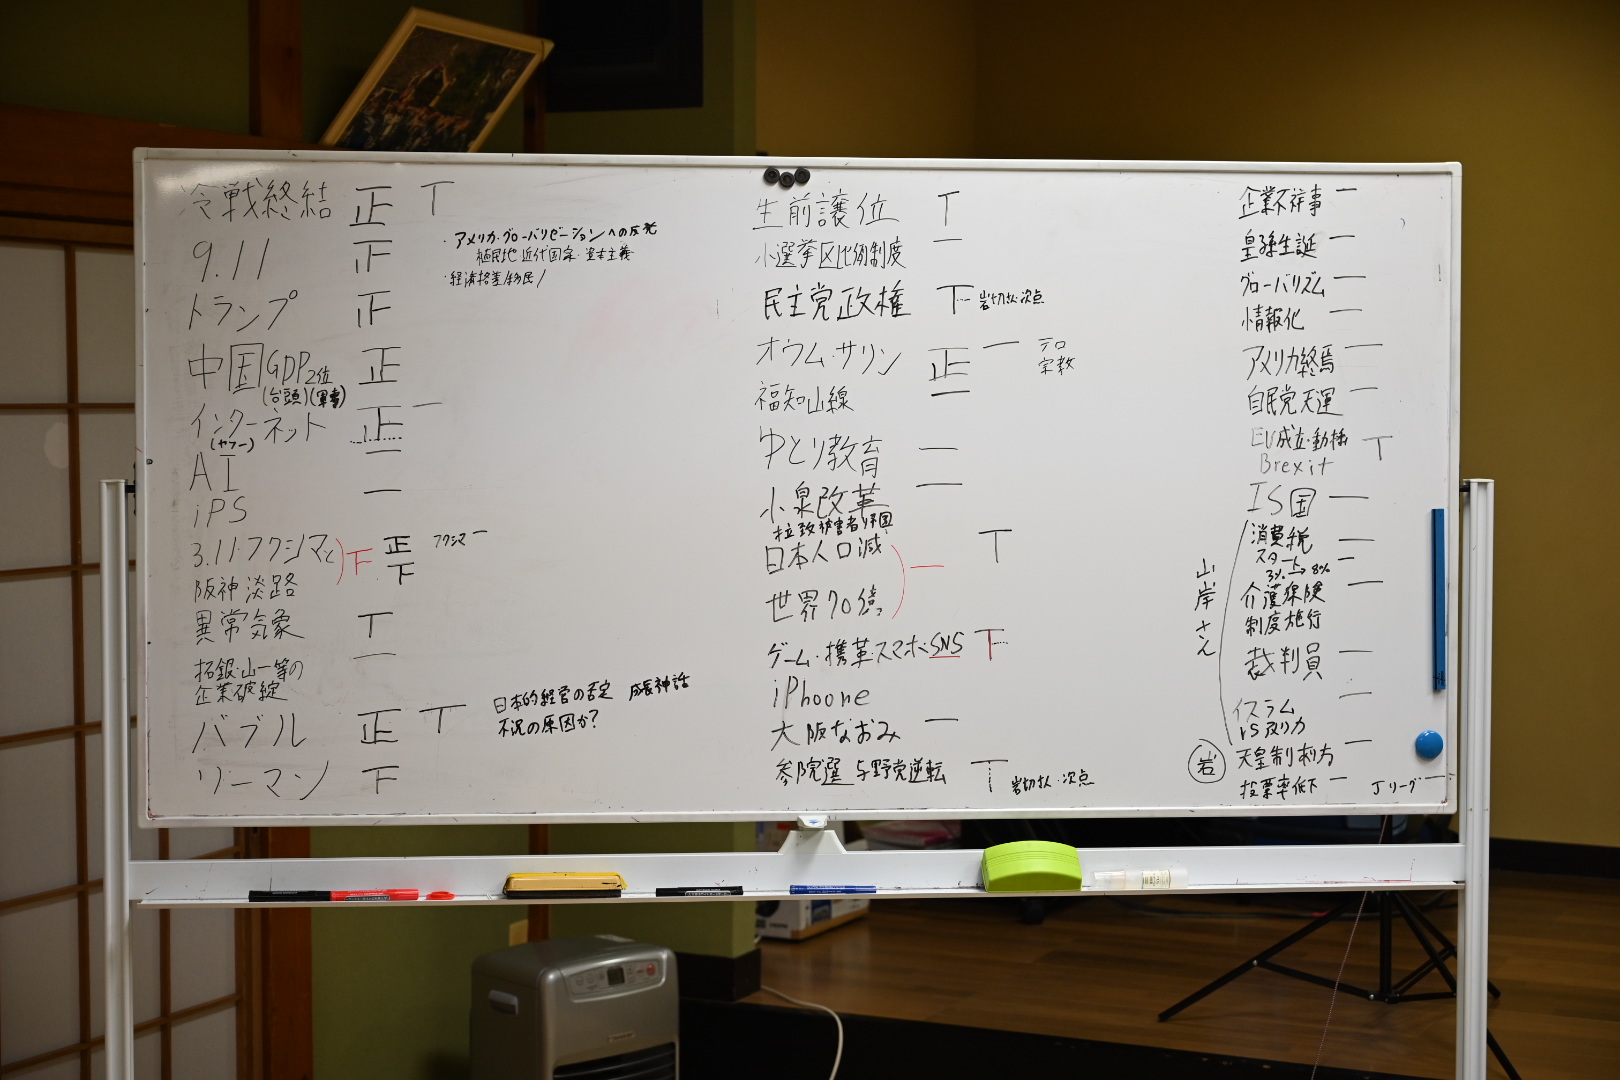 冷戦終結 正 T
9.11 正
・アメリカ・グローバリゼーションへの反発
植民地 近代国家・資本主義
・経済格差/移民/
トランプ 正
中国GDP2位 正
(台頭)(軍事)
インターネット 正 一
(ヤフー)
AI 一
iPS 一
3.11・フクシマと 下 正 フクシマ 一
阪神淡路 下
異常気象 T
拓銀・山一等の 一
企業破綻
バブル 正 T
日本的経営の否定 成長神話
不況の原因か?
リーマン 下
生前譲位 T
小選挙区比例制度 一
民主党政権 下 岩切払・次点
オウム・サリン 正 一 テロ
宗教
福知山線 一
ゆとり教育 一
小泉改革 一
拉致被害者帰国
日本人口減 一 T
世界70億
ゲーム・携帯・スマホ・SNS 下
iPhoone
大阪なおみ 一
参院選 与野党逆転 T 岩切払・次点
企業不祥事 一
皇孫生誕 一
グローバリズム 一
情報化 一
アメリカ終焉 一
自民党天運 一
EU成立・動揺 T
Brexit
IS国 一
山岸さん
消費税 一
スタート 一
3%→8%
介護保険 一
制度施行
裁判員 一
イスラム 一
IS
岩 天皇制 一
投票率低下 一 Jリーグ 一